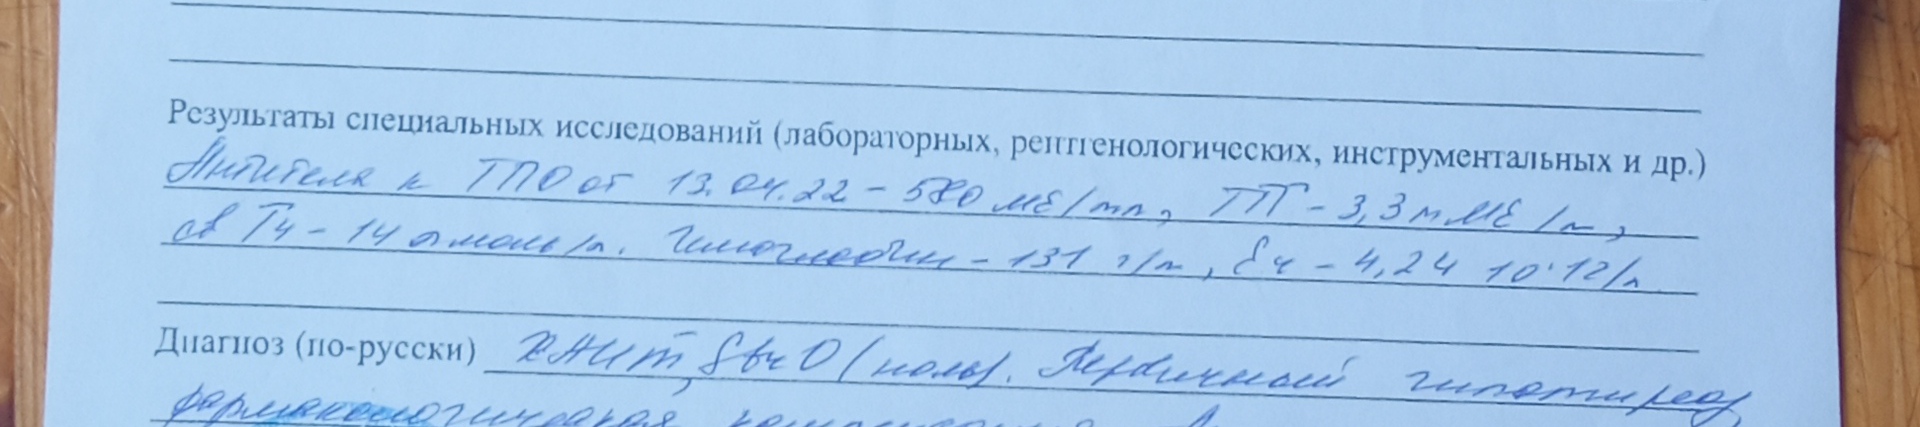 Результаты специальных исследований (лабораторных, рентгенологических, инструментальных и др.)
Антитела к ТПО от 13.04.22 - 580 МЕ/мл, ТТГ - 3,3 мМЕ/л,
св Т4 - 14 пмоль/л. Гемоглобин - 131 г/л, Er - 4,24 10*12/л
Диагноз (по-русски) ХАИТ, Струма 0 (ноль). Первичный гипотиреоз,
фармакологическая